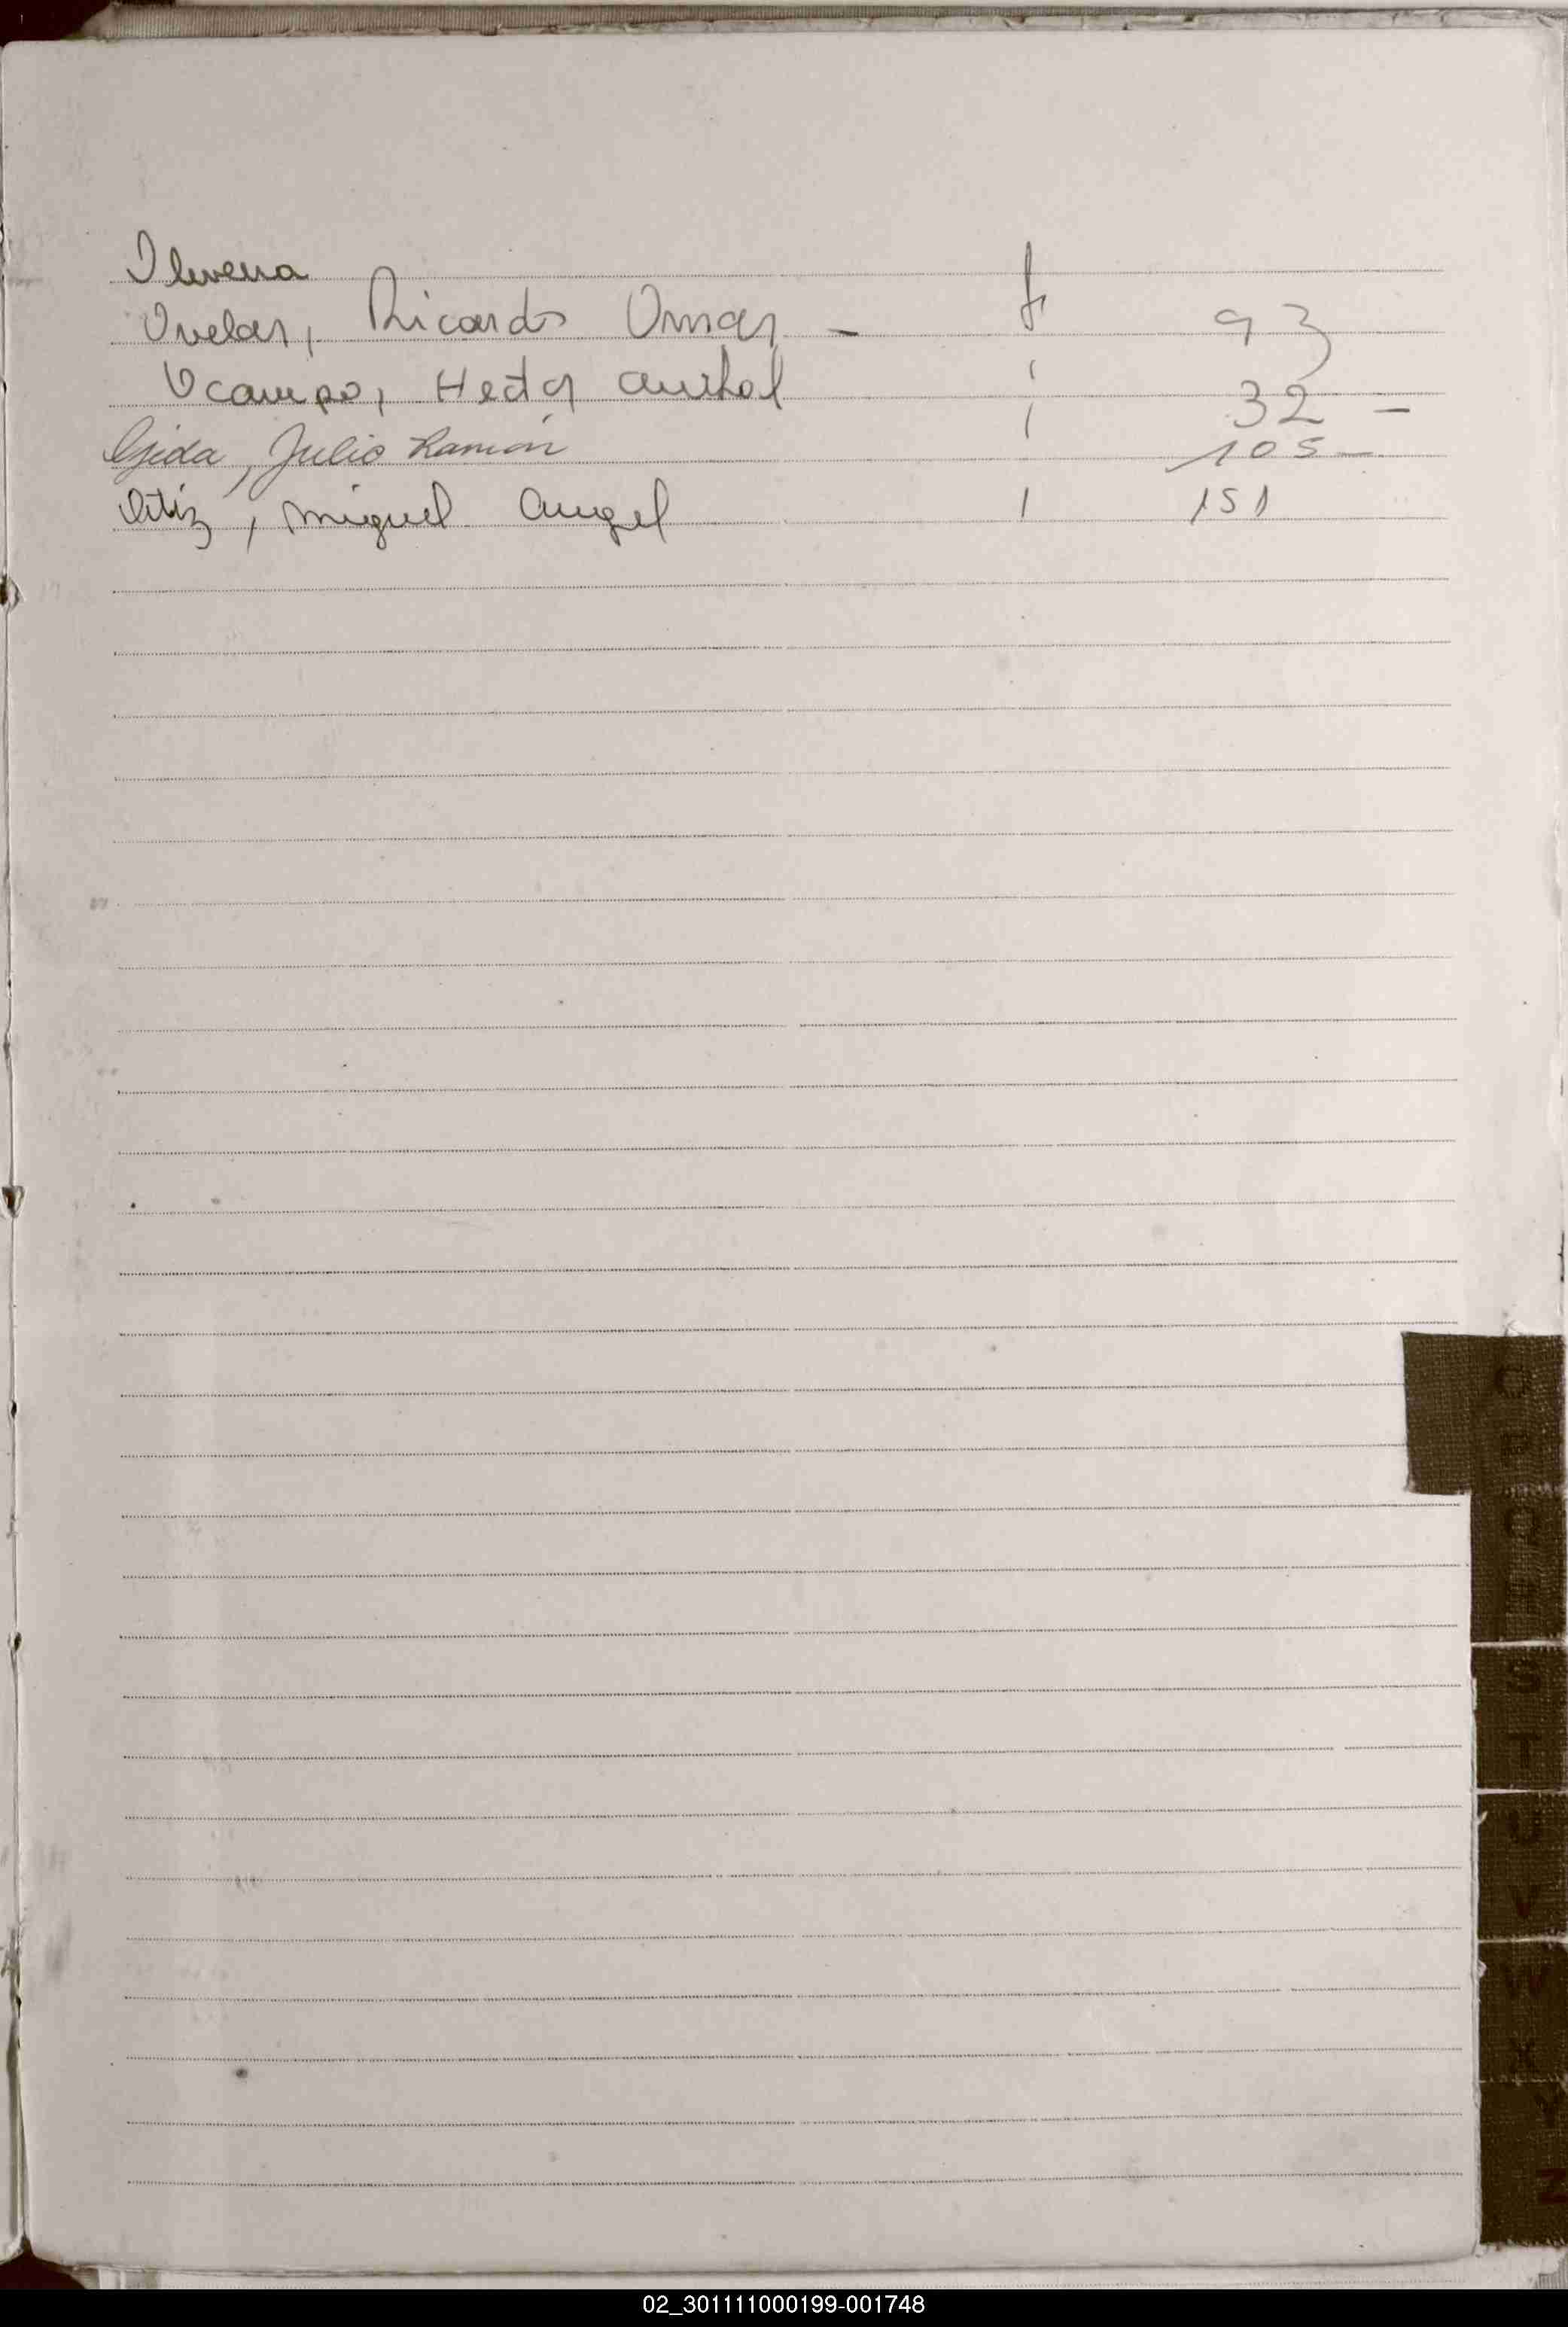 Olivera
Ovelar, Ricardo Omar - f 93
Ocampo, Hector Anibal 32 -
Ojeda, Julio Ramón 105 -
Ortiz, Miguel Angel 151
O
P
Q
R
S
T
U
V
W
X
Y
Z
02_301111000199-001748